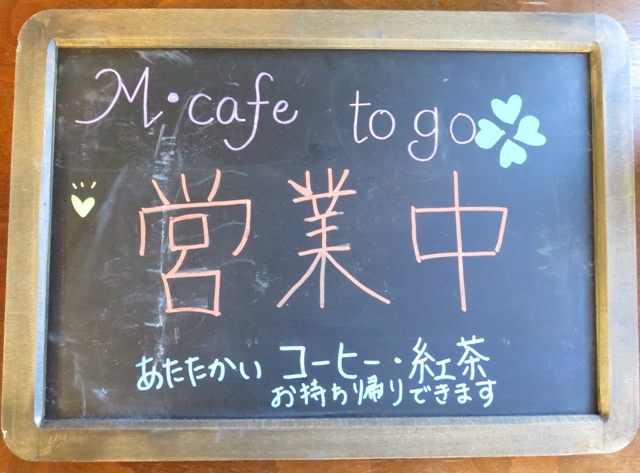 M・cafe to go
営業中
あたたかい コーヒー・紅茶
お持ち帰りできます